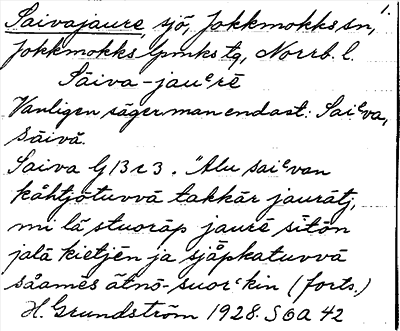 1.
Saivajaure, sjö, Jokkmokks sn,
Jokkmokks lpmks tg, Norrb. l.
Säiva-jauᵉrē
Vanligen säger man endast: Saiᵉva,
säivā.
Saiva G 13 r 3. "Alu saiᵉvan
kåhtjōtuvvá takkár jaurátj,
mi lä stuoráp jaurē sitōn
jalá kietjēn ja sjåpkatuvvá
såamēs ätnō-suorᵉkin (forts.)
H. Grundström 1928. S 6a 42